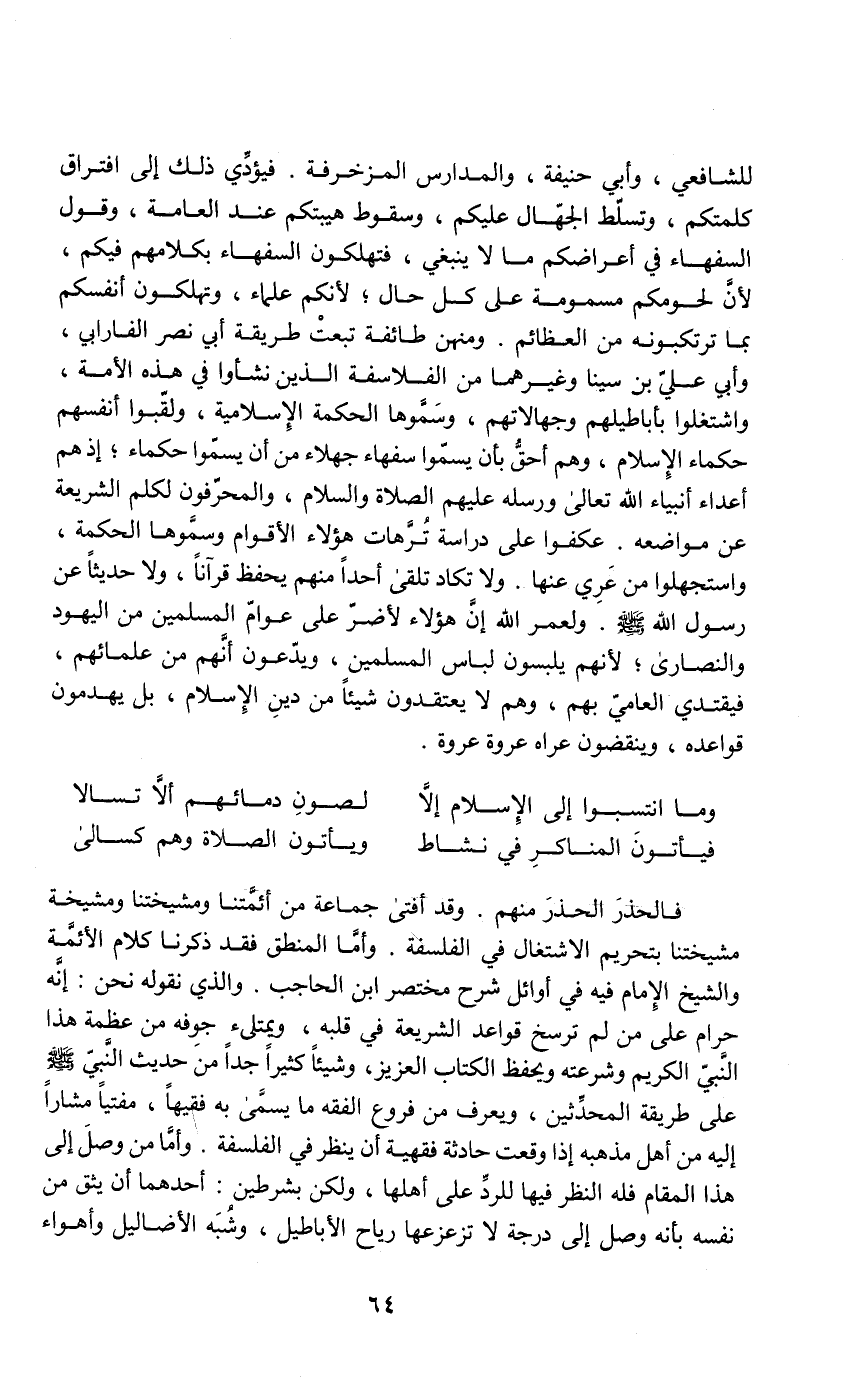 للشافعي ، وأبي حنيفة ، والمدارس المزخرفة . فيؤدِّي ذلك إلى افتراق
كلمتكم ، وتسلّط الجهّال عليكم ، وسقوط هيبتكم عند العامة ، وقول
السفهاء في أعراضكم ما لا ينبغي ، فتهلكون السفهاء بكلامهم فيكم ،
لأنَّ لحومكم مسمومة على كل حال ؛ لأنكم علماء ، وتهلكون أنفسكم
بما ترتكبونه من العظائم . ومنهن طائفة تبعتْ طريقة أبي نصر الفارابي ،
وأبي عليّ بن سينا وغيرهما من الفلاسفة الذين نشأوا في هذه الأمة ،
واشتغلوا بأباطيلهم وجهالاتهم ، وسَمَّوها الحكمة الإسلامية ، ولقّبوا أنفسهم
حكماء الإسلام ، وهم أحقُّ بأن يسمّوا سفهاء جهلاء من أن يسمّوا حكماء ؛ إذ هم
أعداء أنبياء الله تعالىٰ ورسله عليهم الصلاة والسلام ، والمحرّفون لكلم الشريعة
عن مواضعه . عكفوا على دراسة تُرَّهات هؤلاء الأقوام وسمَّوها الحكمة ،
واستجهلوا من عَرِي عنها . ولا تكاد تلقىٰ أحداً منهم يحفظ قرآناً ، ولا حديثاً عن
رسول الله ﷺ . ولعمر الله إنَّ هؤلاء لأضرّ على عوامّ المسلمين من اليهود
والنصارىٰ ؛ لأنهم يلبسون لباس المسلمين ، ويدّعون أنَّهم من علمائهم ،
فيقتدي العاميّ بهم ، وهم لا يعتقدون شيئاً من دينِ الإسلام ، بل يهدمون
قواعده ، وينقضون عراه عروة عروة .
وما انتسبوا إلى الإسلام إلَّا لصونِ دمائهم ألاَّ تسالا
فيأتونَ المناكرِ في نشاط ويأتون الصلاة وهم كسالىٰ
فالحذرَ الحذرَ منهم . وقد أفتىٰ جماعة من أئمَّتنا ومشيختنا ومشيخة
مشيختنا بتحريم الاشتغال في الفلسفة . وأمَّا المنطق فقد ذكرنا كلام الأئمَّة
والشيخ الإمام فيه في أوائل شرح مختصر ابن الحاجب . والذي نقوله نحن : إنَّه
حرام على من لم ترسخ قواعد الشريعة في قلبه ، ويمتلىء جوفه من عظمة هذا
النَّبيّ الكريم وشرعته ويحفظ الكتاب العزيز، وشيئاً كثيراً جداً من حديث النَّبيّ ﷺ
على طريقة المحدِّثين ، ويعرف من فروع الفقه ما يسمَّىٰ به فقيهاً ، مفتياً مشاراً
إليه من أهل مذهبه إذا وقعت حادثة فقهية أن ينظر في الفلسفة . وأمَّا من وصلَ إلى
هذا المقام فله النظر فيها للردِّ على أهلها ، ولكن بشرطين : أحدهما أن يثق من
نفسه بأنه وصل إلى درجة لا تزعزعها رياح الأباطيل ، وشُبَه الأضاليل وأهواء
٦٤